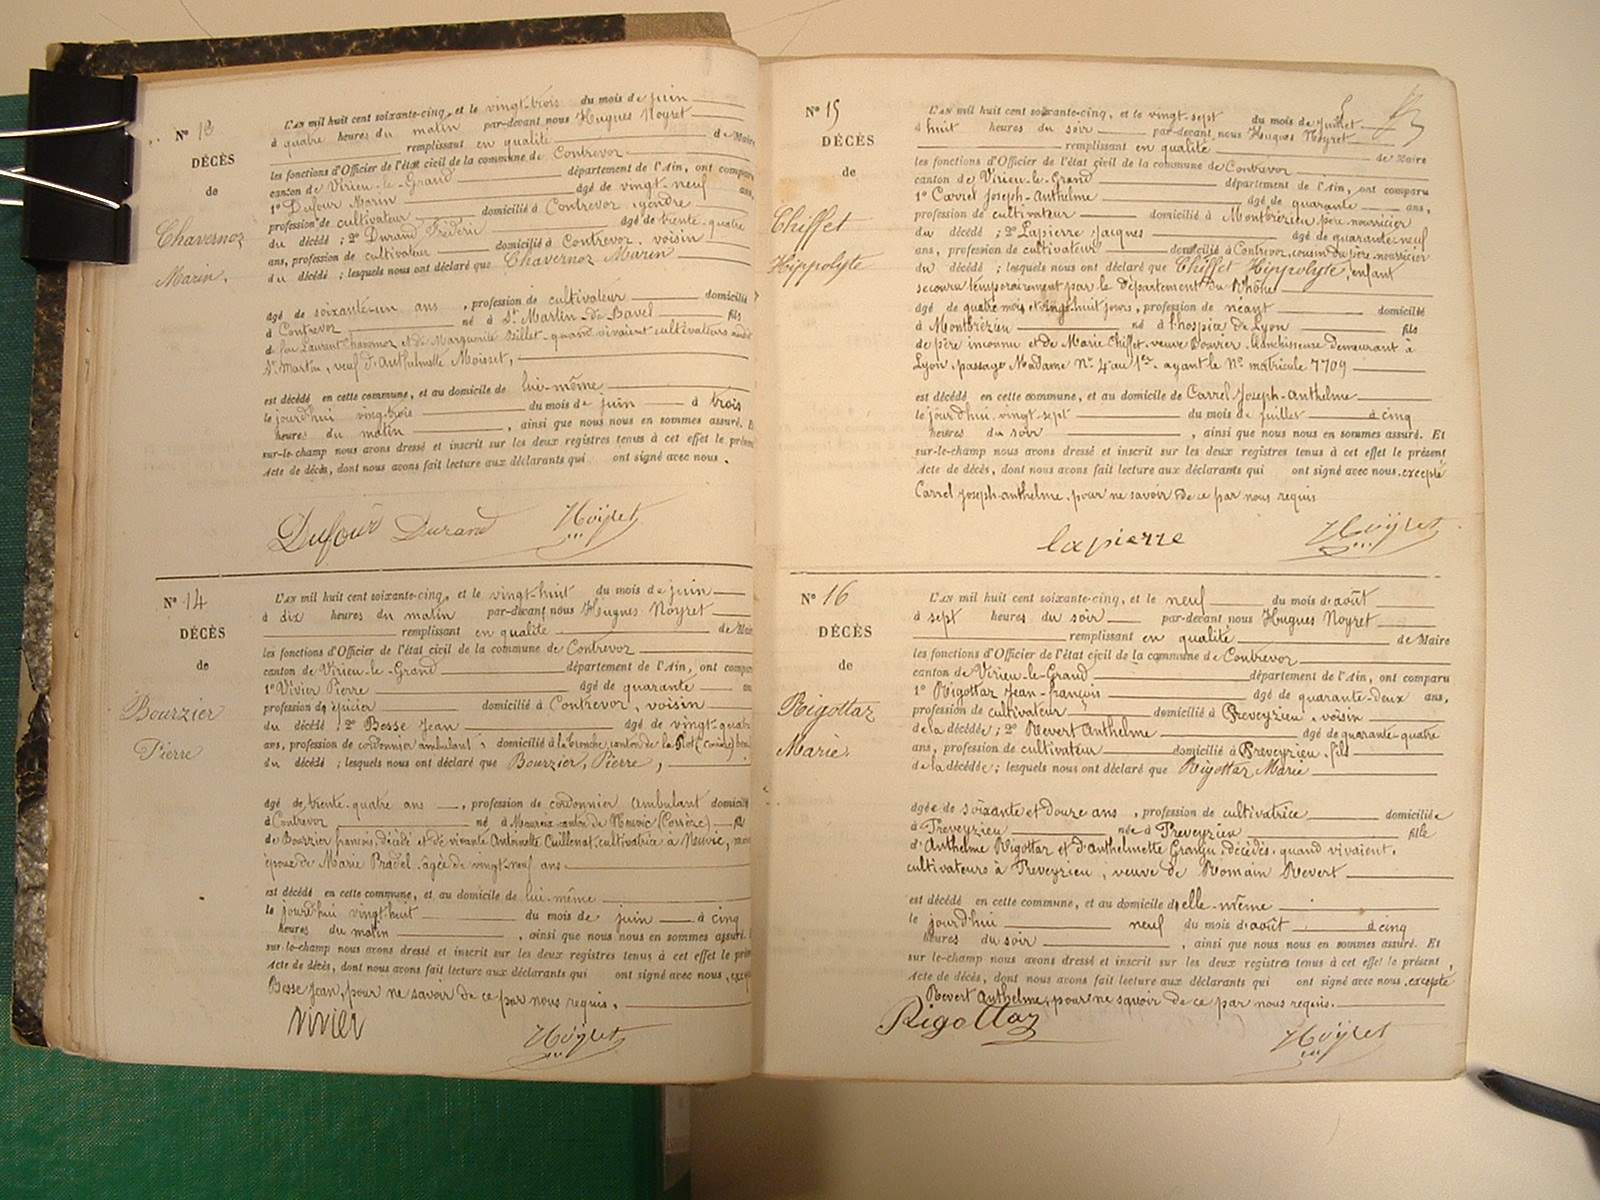 N° 13
DÉCÈS
de
Chavernoz
Marin.
L'AN mil huit cent soixante-cinq, et le vingt-trois du mois de juin
à quatre heures du matin par-devant nous Hugues Noyret
remplissant en qualité de Maire
les fonctions d'Officier de l'état civil de la commune de Contrevoz
canton de Virieu-le-Grand département de l'Ain, ont comparu
1° Dufour Marin âgé de vingt-neuf ans,
profession de cultivateur domicilié à Contrevoz, gendre
du décédé ; 2° Durand Frédéric âgé de trente-quatre
ans, profession de cultivateur domicilié à Contrevoz, voisin
du décédé ; lesquels nous ont déclaré que Chavernoz Marin
âgé de soixante-un ans, profession de cultivateur domicilié
à Contrevoz né à St Martin-de-Bavel fils
de feu Laurent Chavernoz et de Marguerite Billet quand vivaient cultivateurs audit
St Martin, veuf d'Anthelmette Moisset,
est décédé en cette commune, et au domicile de lui-même
le jourd'hui vingt-trois du mois de juin à trois
heures du matin, ainsi que nous nous en sommes assuré. Et
sur-le-champ nous avons dressé et inscrit sur les deux registres tenus à cet effet le présent
Acte de décès, dont nous avons fait lecture aux déclarants qui ont signé avec nous.
Dufour Durand Noyret
N° 14
DÉCÈS
de
Bourzier
Pierre
L'AN mil huit cent soixante-cinq, et le vingt-huit du mois de juin
à dix heures du matin par-devant nous Hugues Noyret
remplissant en qualité de Maire
les fonctions d'Officier de l'état civil de la commune de Contrevoz
canton de Virieu-le-Grand département de l'Ain, ont comparu
1° Vivier Pierre âgé de quarante ans
profession de épicier domicilié à Contrevoz, voisin
du décédé 2° Besse Jean âgé de vingt-quatre
ans, profession de cordonnier ambulant domicilié à canton de la
du décédé ; lesquels nous ont déclaré que Bourzier, Pierre,
âgé de trente-quatre ans, profession de cordonnier ambulant domicilié
à Contrevoz né à canton de Neuvic (Corrèze) fils
de Bourzier françois, décédé et de vivante Antoinette Cuillenat, cultivatrice à Neuvic,
époux de Marie Pradel, agée de vingt-neuf ans
est décédé en cette commune, et au domicile de lui-même
le jourd'hui vingt-huit du mois de juin à cinq
heures du matin, ainsi que nous nous en sommes assuré.
sur-le-champ nous avons dressé et inscrit sur les deux registres tenus à cet effet le présent
Acte de décès, dont nous avons fait lecture aux déclarants qui ont signé avec nous, excepté
Besse Jean, pour ne savoir de ce par nous requis.
Vivier Noyret
N° 15
DÉCÈS
de
Chiffet
Hippolyte
L'AN mil huit cent soixante-cinq, et le vingt-sept du mois de juillet
à huit heures du soir par-devant nous Hugues Noyret
remplissant en qualité de Maire
les fonctions d'Officier de l'état civil de la commune de Contrevoz
canton de Virieu-le-Grand département de l'Ain, ont comparu
1° Carrel Joseph-Anthelme âgé de quarante ans,
profession de cultivateur domicilié à Montbrézieu père nourricier
du décédé ; 2° Lapierre Jacques âgé de quarante-neuf
ans, profession de cultivateur domicilié à Contrevoz, cousin du père nourricier
du décédé ; lesquels nous ont déclaré que Chiffet Hippolyte, enfant
secouru temporairement par le département du Rhône
âgé de quatre mois et vingt-huit jours, profession de néant domicilié
à Montbrézieu né à l'hospice de Lyon fils
de père inconnu et de Marie Chiffet, veuve Bouvier, blanchisseuse demeurant à
Lyon, passage Madame N° 4 au 1er, ayant le N° matricule 7709
est décédé en cette commune, et au domicile de Carrel Joseph-Anthelme
le jourd'hui vingt-sept du mois de juillet à cinq
heures du soir, ainsi que nous nous en sommes assuré. Et
sur-le-champ nous avons dressé et inscrit sur les deux registres tenus à cet effet le présent
Acte de décès, dont nous avons fait lecture aux déclarants qui ont signé avec nous, excepté
Carrel Joseph-anthelme, pour ne savoir de ce par nous requis
lapierre Noyret
N° 16
DÉCÈS
de
Rigottaz
Marie.
L'AN mil huit cent soixante-cinq, et le neuf du mois de août
à sept heures du soir par-devant nous Hugues Noyret
remplissant en qualité de Maire
les fonctions d'Officier de l'état civil de la commune de Contrevoz
canton de Virieu-le-Grand département de l'Ain, ont comparu
1° Rigottaz Jean-françois âgé de quarante-deux ans,
profession de cultivateur domicilié à Preveyzieu, voisin
de la décédée ; 2° Revert Anthelme âgé de quarante-quatre
ans, profession de cultivateur domicilié à Preveyzieu, fils
de la décédée ; lesquels nous ont déclaré que Rigottaz Marie
âgée de soixante et douze ans, profession de cultivatrice domiciliée
à Preveyzieu née à Preveyzieu fille
d'Anthelme Rigottaz et d'anthelmette Granju, décédés, quand vivaient,
cultivateurs à Preveyzieu, veuve de Romain Revert
est décédé en cette commune, et au domicile d'elle-même
le jourd'hui neuf du mois d'août à cinq
heures du soir, ainsi que nous nous en sommes assuré. Et
sur-le-champ nous avons dressé et inscrit sur les deux registres tenus à cet effet le présent
Acte de décès, dont nous avons fait lecture aux déclarants qui ont signé avec nous, excepté
Revert Anthelme, pour ne savoir de ce par nous requis.
Rigottaz Noyret